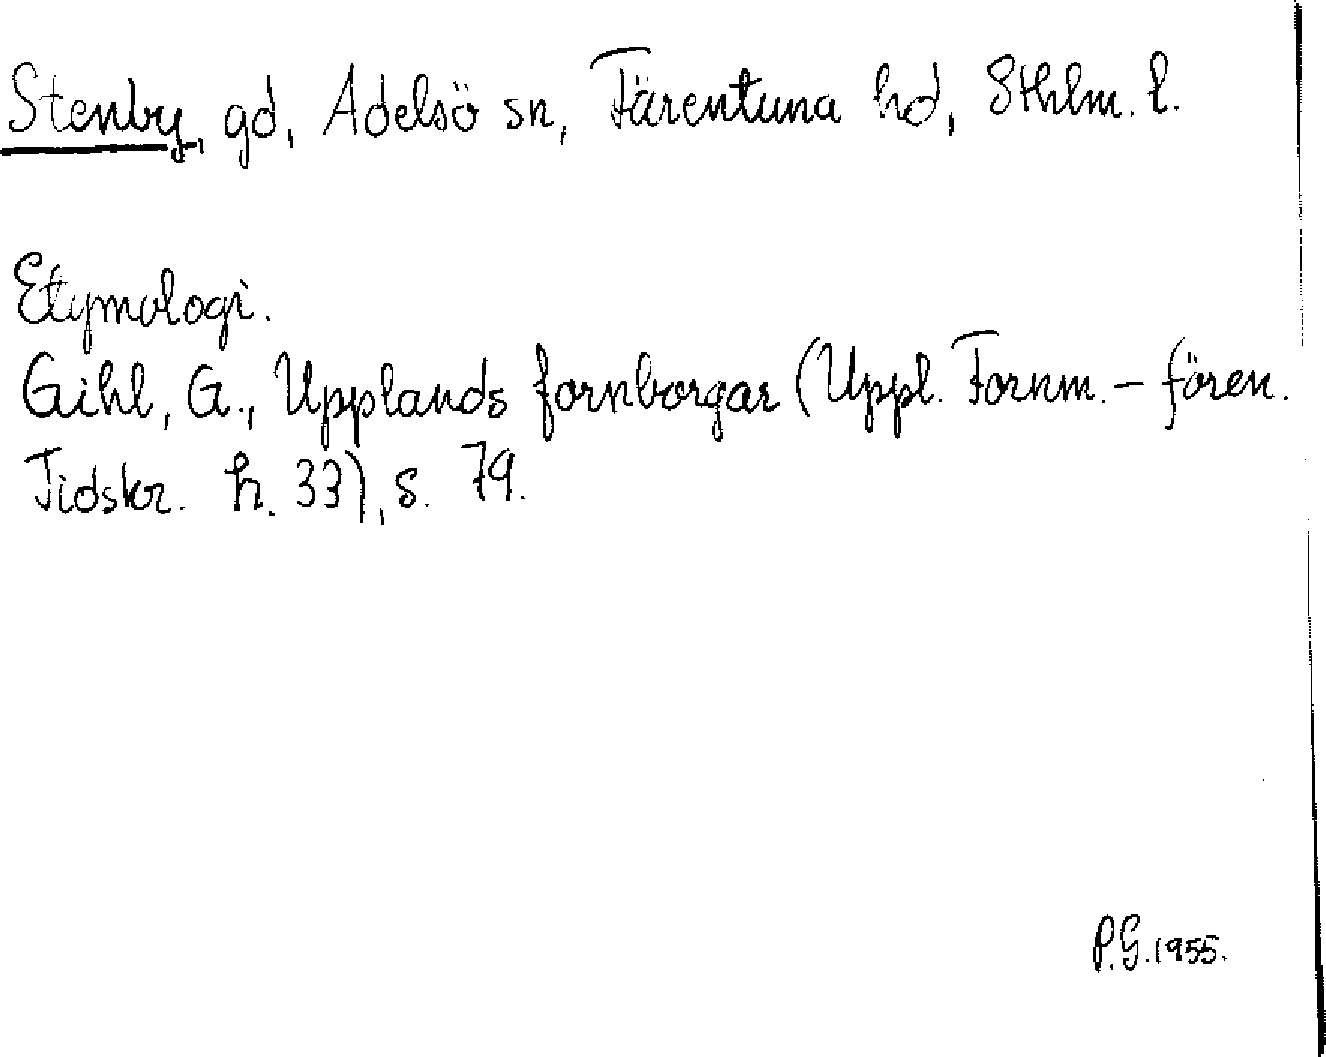 Stenby, gd, Adelsö sn, Färentuna hd, Sthlm. l.
Etymologi.
Gihl, G., Upplands fornborgar (Uppl. Fornm. - fören.
Tidskr. h. 33), s. 79.
P.G. 1955.